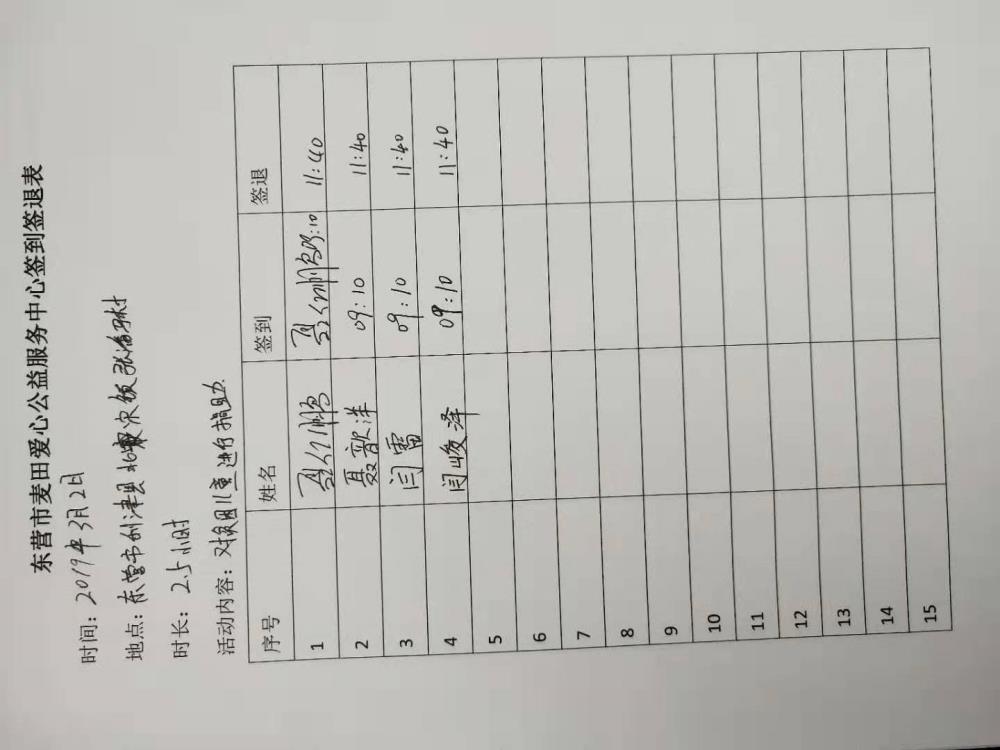 东营市麦田爱心公益服务中心签到签退表
时间：2019年3月2日
地点：东营市利津县北宋 村
时长：2.5小时
活动内容：对贫困儿童进行捐助.
序号 姓名 签到 签退
1 09:10 11:40
2 聂歆洋 09:10 11:40
3 闫雷 09:10 11:40
4 闫峻泽 09:10 11:40
5
6
7
8
9
10
11
12
13
14
15